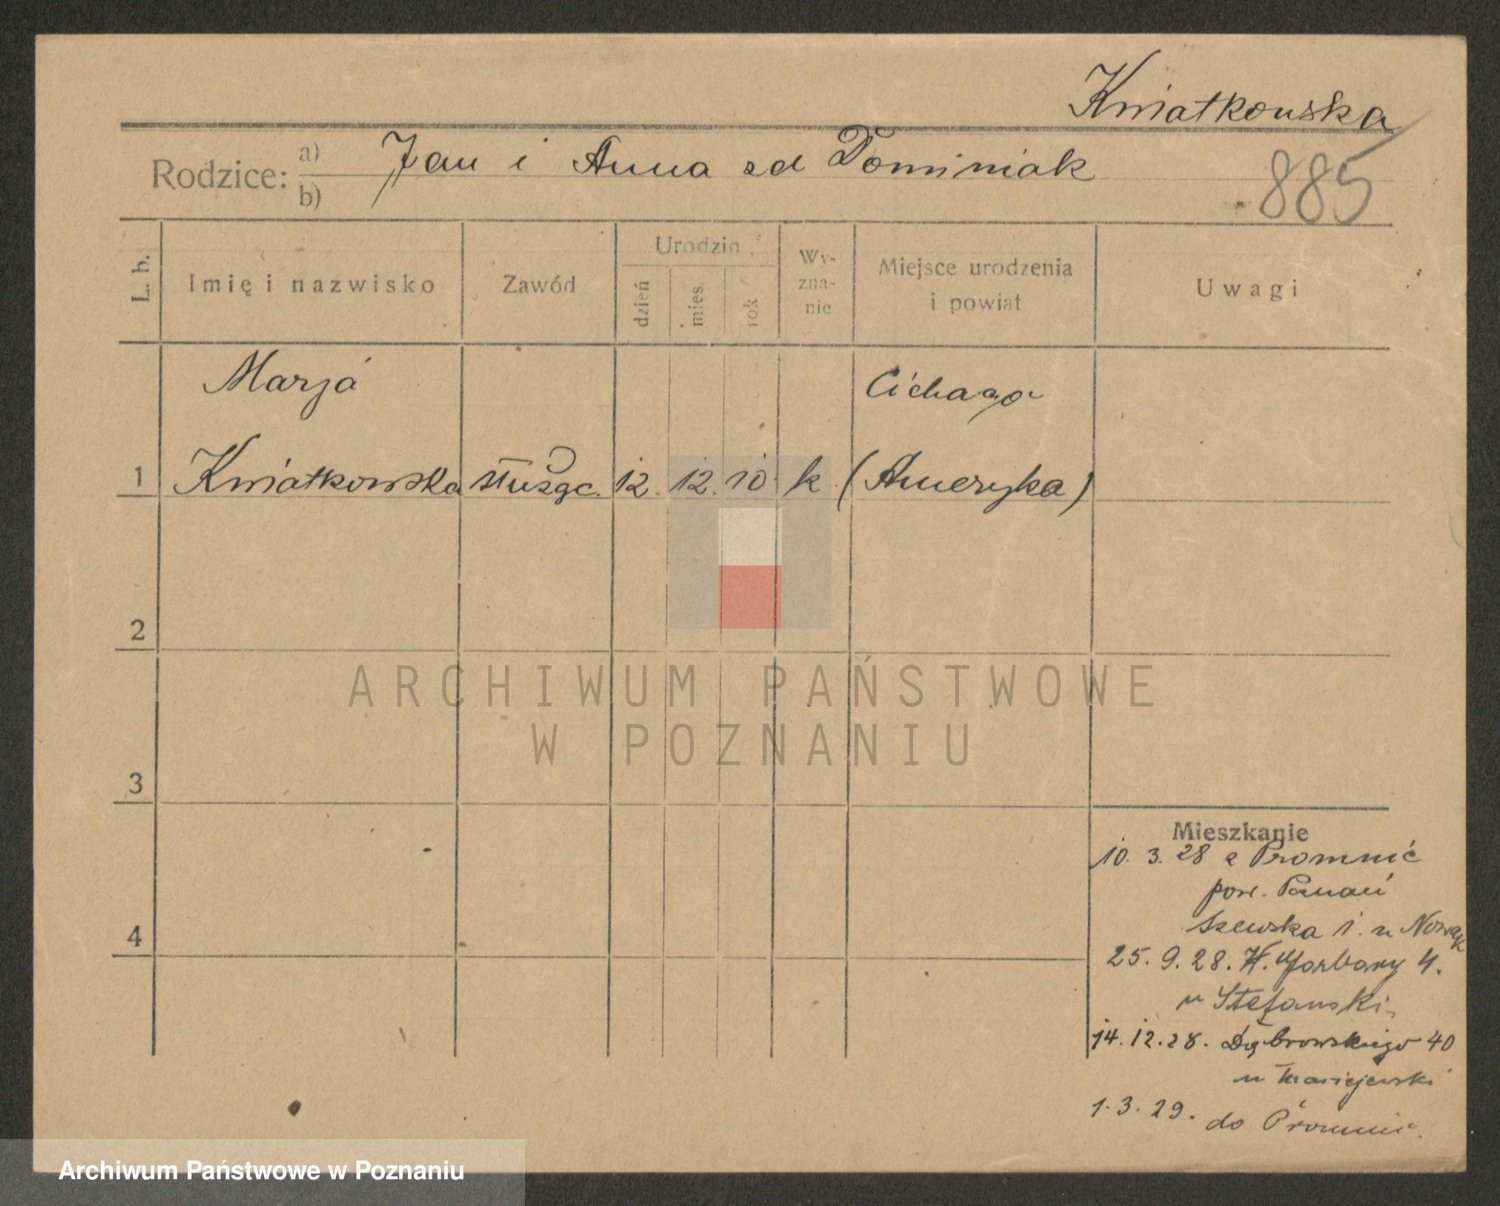 Kwiatkowska
Rodzice: a) b) Jan i Anna zd Dominiak
885
L. b. Imię i nazwisko Zawód Urodzin dzień mies. rok Wyznanie Miejsce urodzenia i powiat Uwagi
Marja Cichago
1 Kwiatkowska służąc. 12. 12. 10 k (Ameryka)
2
3
4
Mieszkanie
10. 3. 28 z Promnic
pow. Poznań
Szewska 1. u Nowak
25. 9. 28. W. Garbary 4.
u Stefanski
14. 12. 28. Dąbrowskiego 40
u Maciejewski
1. 3. 29. do Promnic.
ARCHIWUM PAŃSTWOWE
W POZNANIU
Archiwum Państwowe w Poznaniu